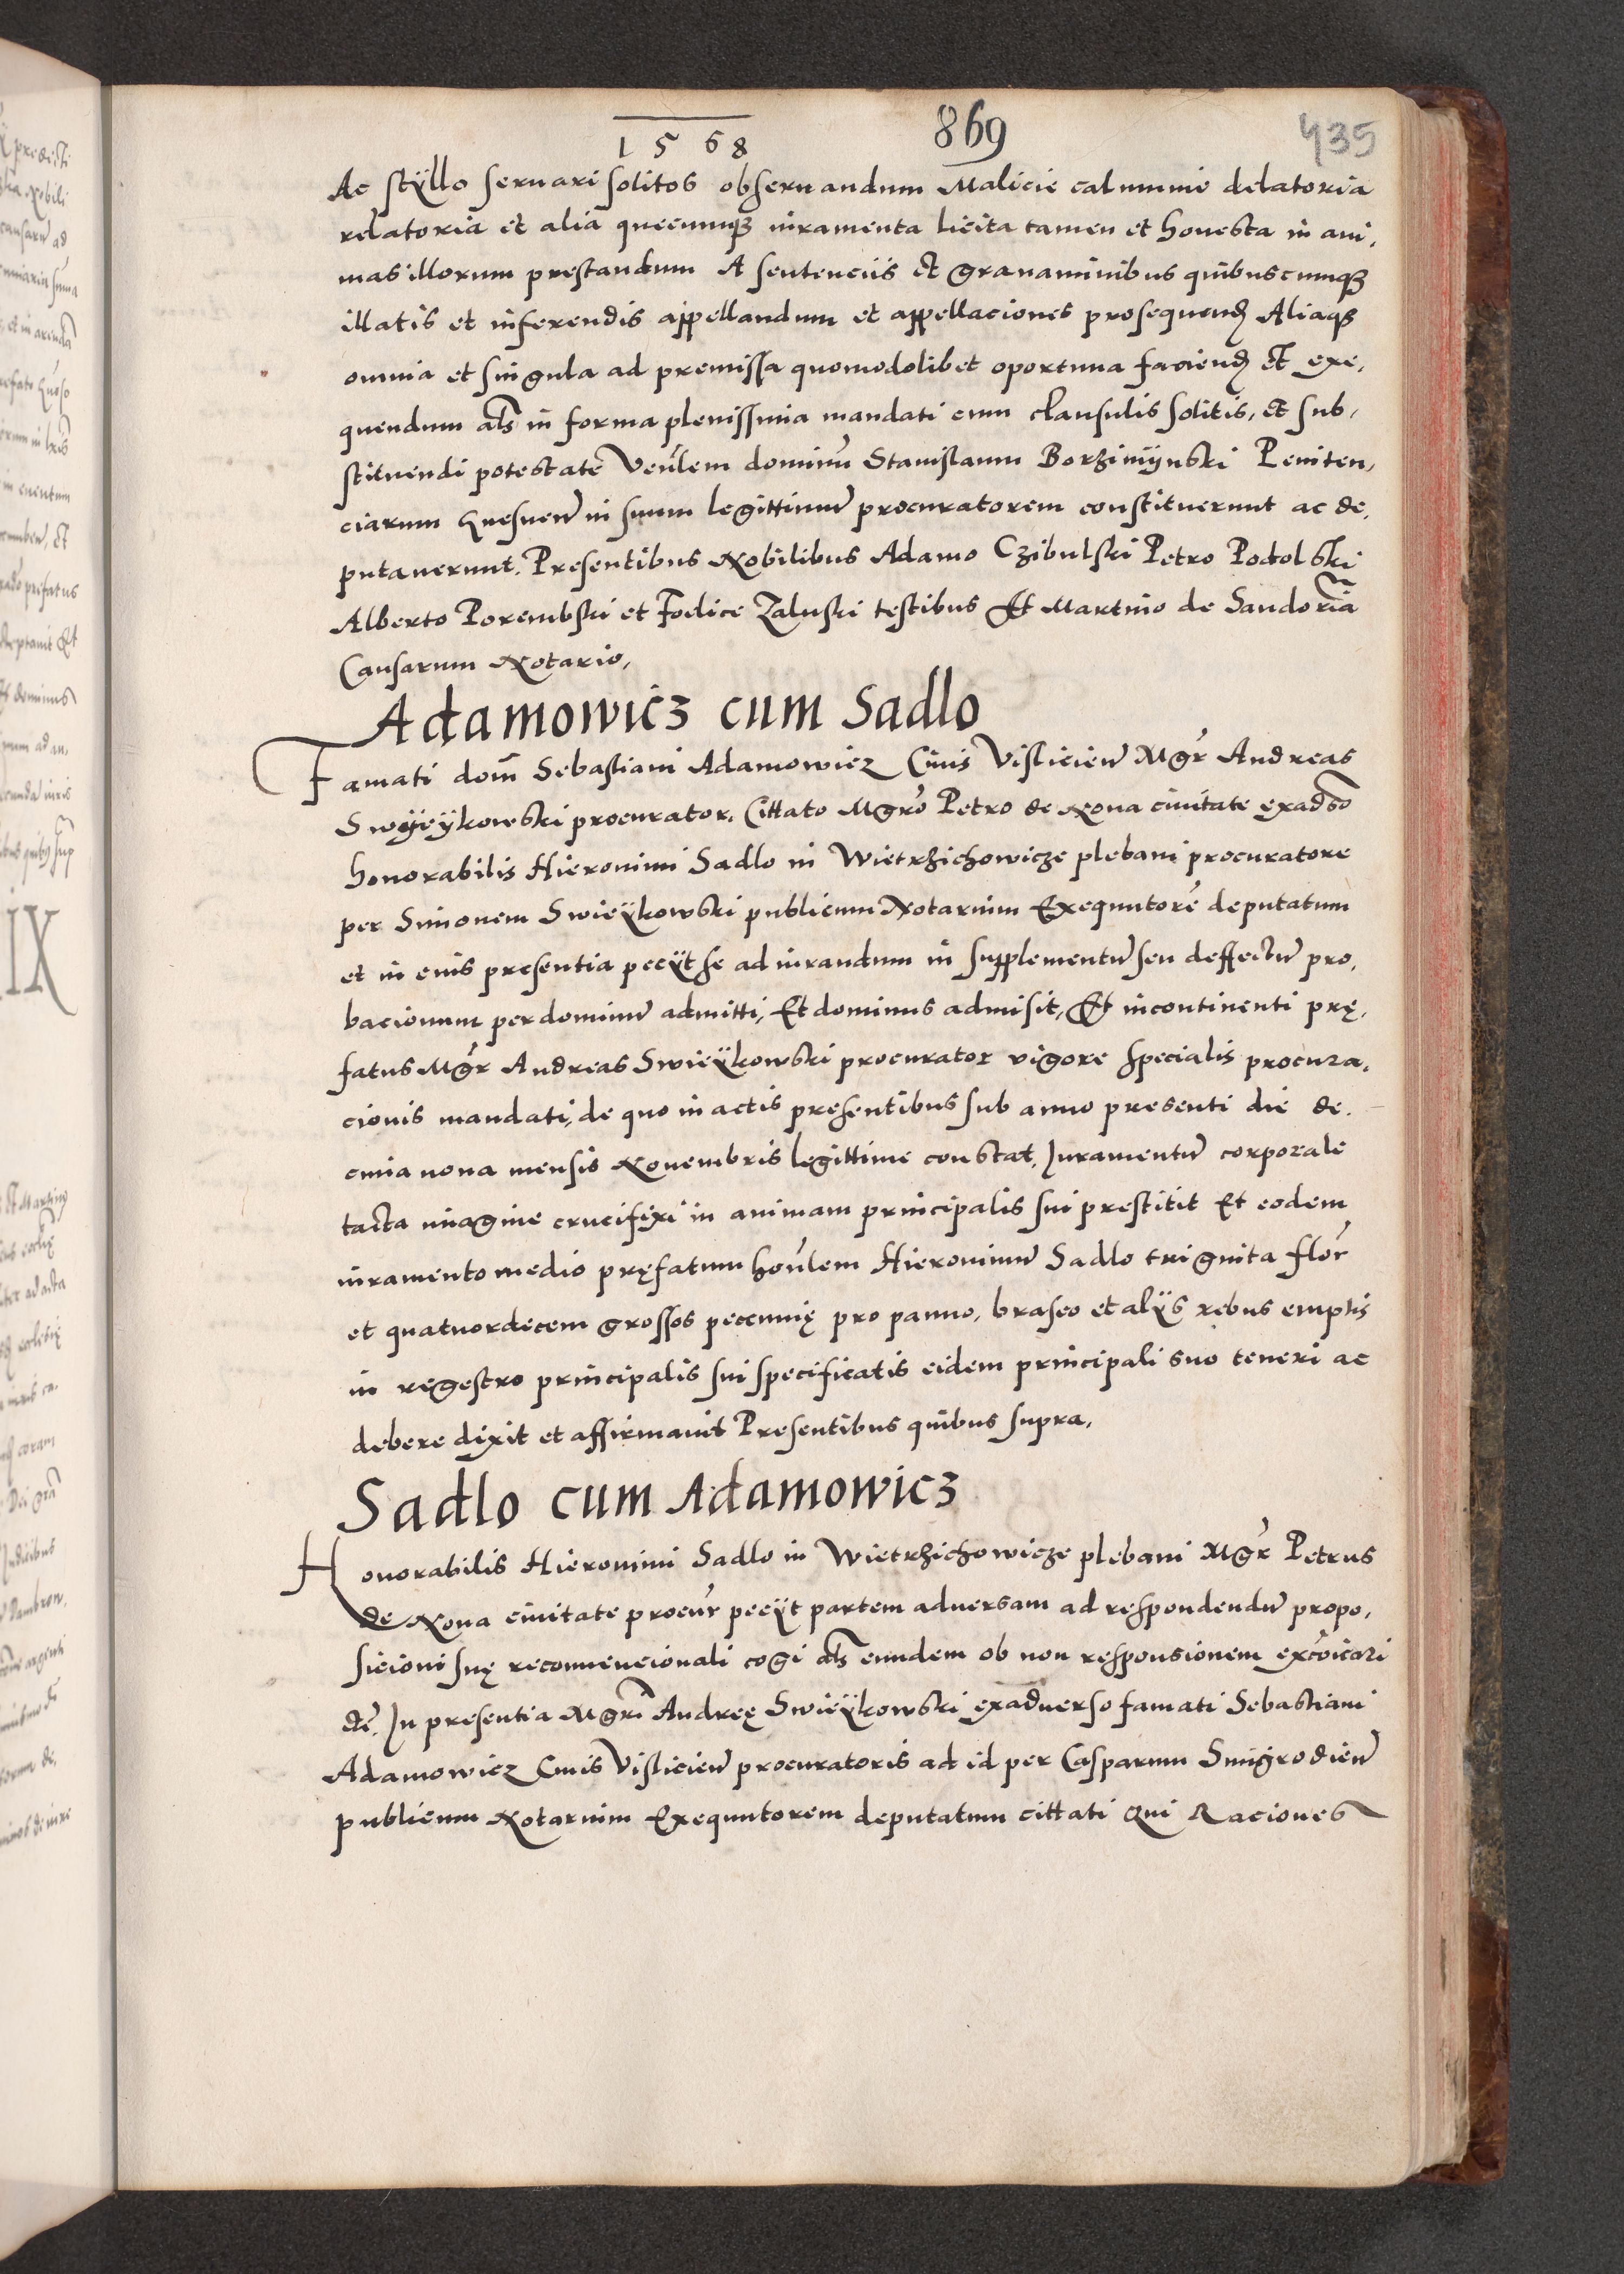 1568 869 435
Ac stÿllo seruari solitos obseruandum Malicie calumnie delatoria
relatoria et alia quecunqꝫ iuramenta licita tamen et honesta in ani,
mas illorum prestandum A sentencÿs et grauaminibus quibuscunqꝫ
illatis et inferendis appellandum et appellaciones prosequend Aliaqꝫ
omnia et singula ad premissa quomodolibet oportuna faciend et exe,
quendum als in forma plenissima mandati cum clausulis solitis, et sub,
stituendi potestate Venlem dominū Stanislaum Borzimÿnski Peniten,
ciarum in suum legittimū procuratorem constituerunt ac de,
putauerunt. Presentibus Nobilibus Adamo Czibulski Petro Podolski
Alberto Porembski et Foelice Zaluski testibus Et Martino de
Causarum Notario,
Adamowicz cum Sadlo
Famati dom̄ Sebastiani Adamowicz Ciuis Visliciēn Mgr Andreas
Swÿeÿkowski procurator, Cittato Mgro Petro de Noua ciuitate exadso
honorabilis Hieronimi Sadlo in Wietrzichowicze plebani procuratore
per Simonem Swieÿkowski publicum Notarium Exequutorē deputatum
et in eius presentia peciÿt se ad iurandum in supplementū seu deffectū pro,
bacionum per dominū admitti, Et dominus admisit, Et incontinenti prę,
fatus Mgr Andreas Swieÿkowski procurator vigore specialis procura,
cionis mandati, de quo in actis presentibus sub anno presenti die de,
cima nona mensis Nouembris legittime constat, Juramentū corporale
tacta imagine crucifixi in animam principalis sui prestitit Et eodem
iuramento medio pręfatum honlem Hieronimū Sadlo triginta flor
et quatuordecem grossos peccunię pro panno, braseo et alÿs rebus emptis
in regestro principalis sui specificatis eidem principali suo teneri ac
debere dixit et affirmauit Presentibus quibus supra,
Sadlo cum Adamowicz
Honorabilis Hieronimi Sadlo in Wietrzichowicze plebani Mgr Petrus
de Noua ciuitate procur peciÿt partem aduersam ad respondendū propo,
sicioni suę reconuencionali cogi als eundem ob non responsionem excoicari
In presentia Mgri Andreę Swieÿkowski exaduerso famati Sebastiani
Adamowicz Ciuis Visliciēn procuratoris ad id per Casparum Smigrodiēn
publicum Notarium Exequutorem deputatum cittati Qui Raciones